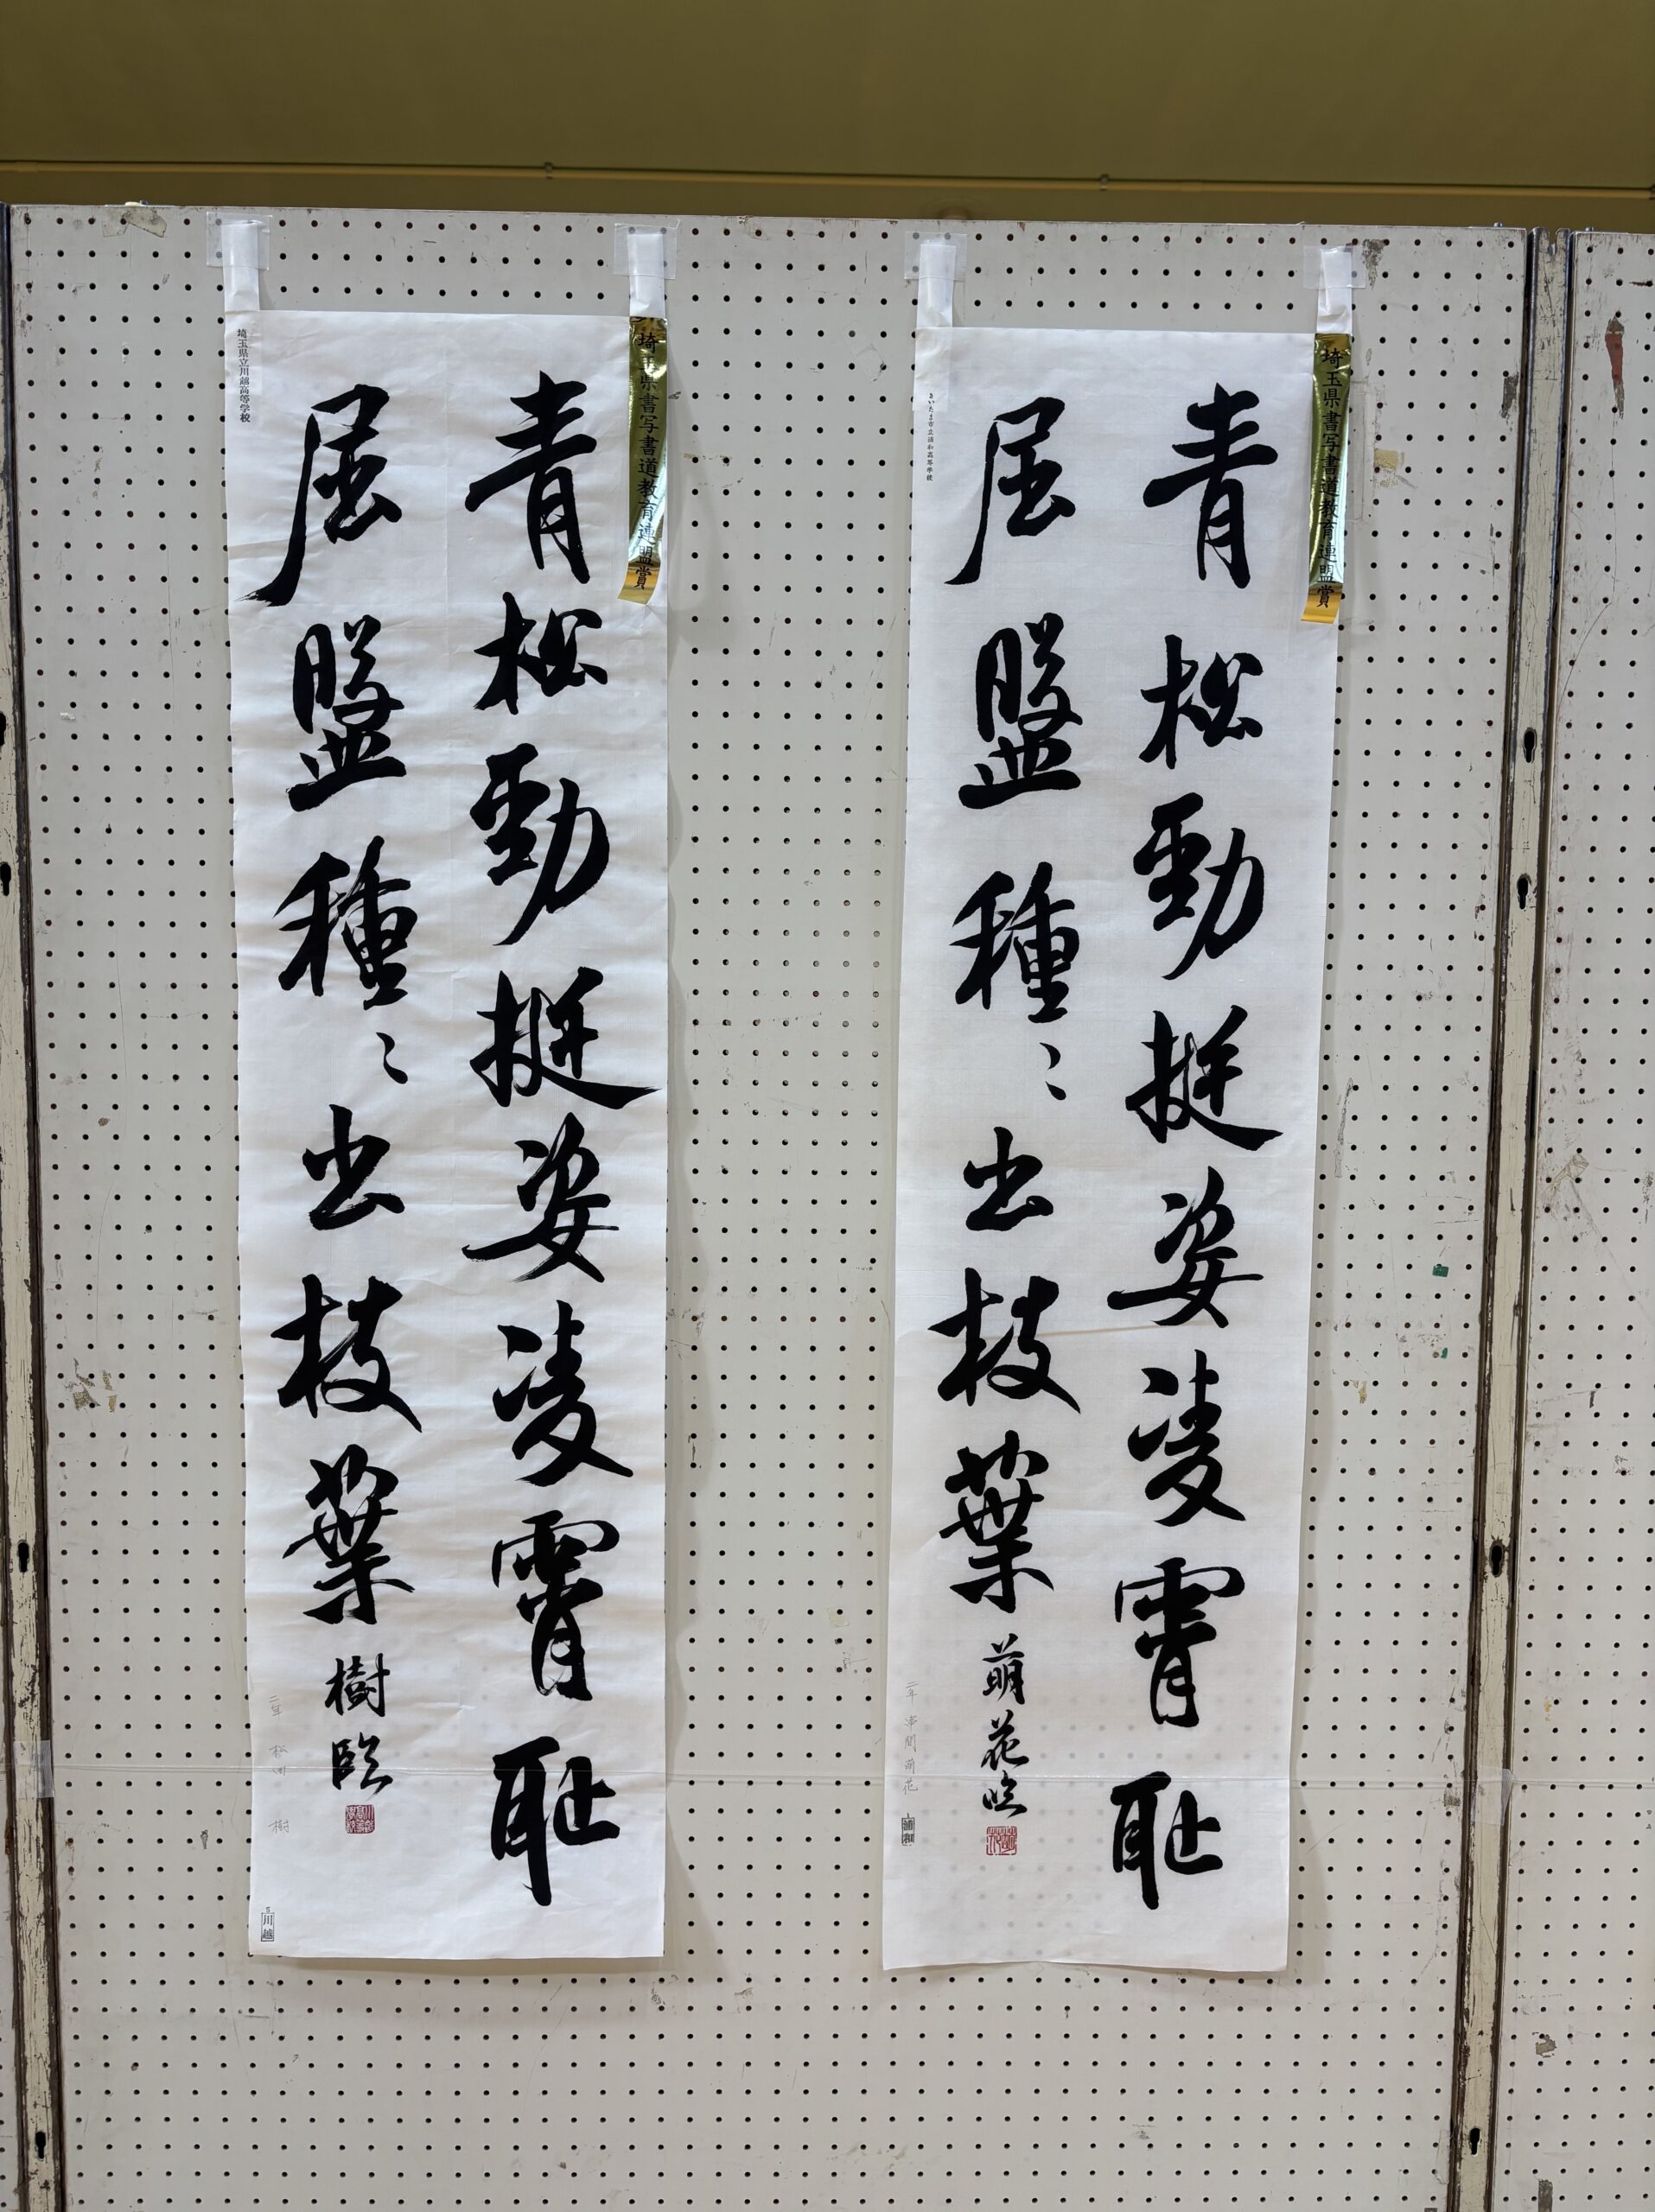 埼玉県書写書道教育連盟賞
青松勁挺姿凌霄恥
屈盤種〻出枝葉
樹臨
埼玉県立川越高等学校
二年 松田 樹
川越
埼玉県書写書道教育連盟賞
青松勁挺姿凌霄恥
屈盤種〻出枝葉
萌花臨
さいたま市立浦和高等学校
二年 串間萌花